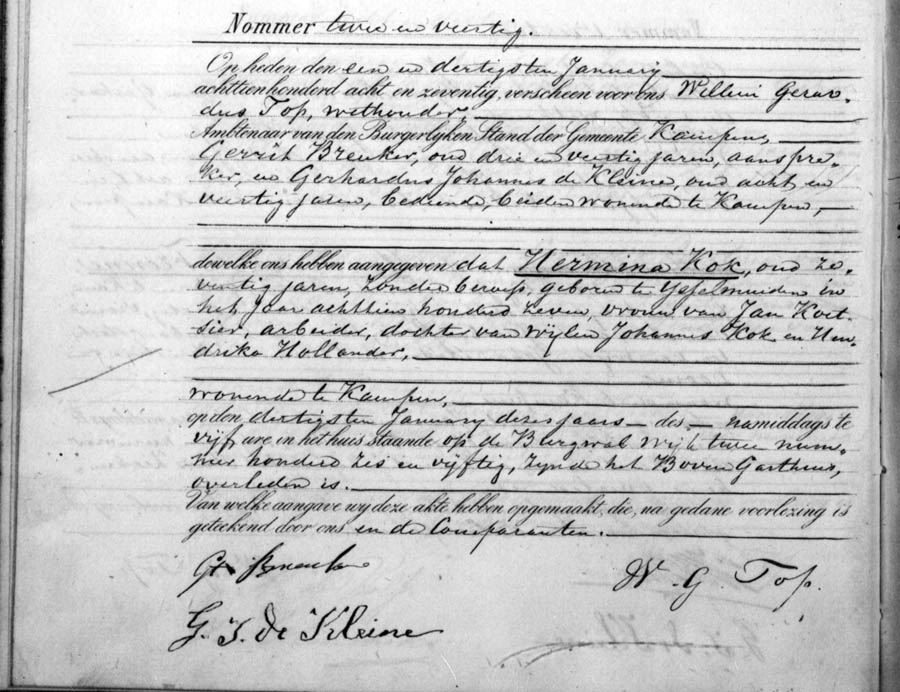 Nommer twee en veertig.
Op heden den een en dertigsten January
achttienhonderd acht en zeventig, verscheen voor ons Willem Gerar-
dus Top, wethouder,
Ambtenaar van den Burgerlyken Stand der Gemeente Kampen,
Gerrit Breuker, oud drie en veertig jaren, aanspre-
ker, en Gerhardus Johannes de Kleine, oud acht en
veertig jaren, bediende, beiden wonende te Kampen,
dewelke ons hebben aangegeven dat Hermina Kok, oud ze-
ventig jaren, zonder beroep, geboren te IJsselmuiden in
het jaar achttien honderd zeven, vrouw van Jan Koet-
sier, arbeider, dochter van wijlen Johannes Kok en Hen-
drika Hollander,
wonende te Kampen,
op den dertigsten January dezes jaars — des — namiddags te
vijf ure in het huis staande op de Burgwal Wijk twee num-
mer honderd zes en vijftig, zijnde het Boven Gasthuis,
overleden is.
Van welke aangave wy deze akte hebben opgemaakt, die, na gedane voorlezing is
geteekend door ons en de Comparanten.
Gt Breuker
W. G. Top.
G. J. de Kleine